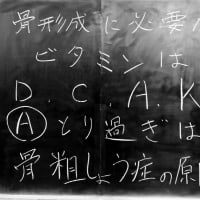 骨形成に必要な
ビタミンは
D.C.A.K
Ⓐとり過ぎは
骨粗しょう症の原